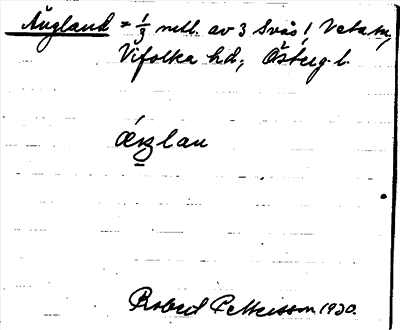 Ängland = 1/3 mtl. av 3 Svås i Veta sn,
Vifolka hd; Österg. l.
æŋlan
Robert Pettersson 1920.